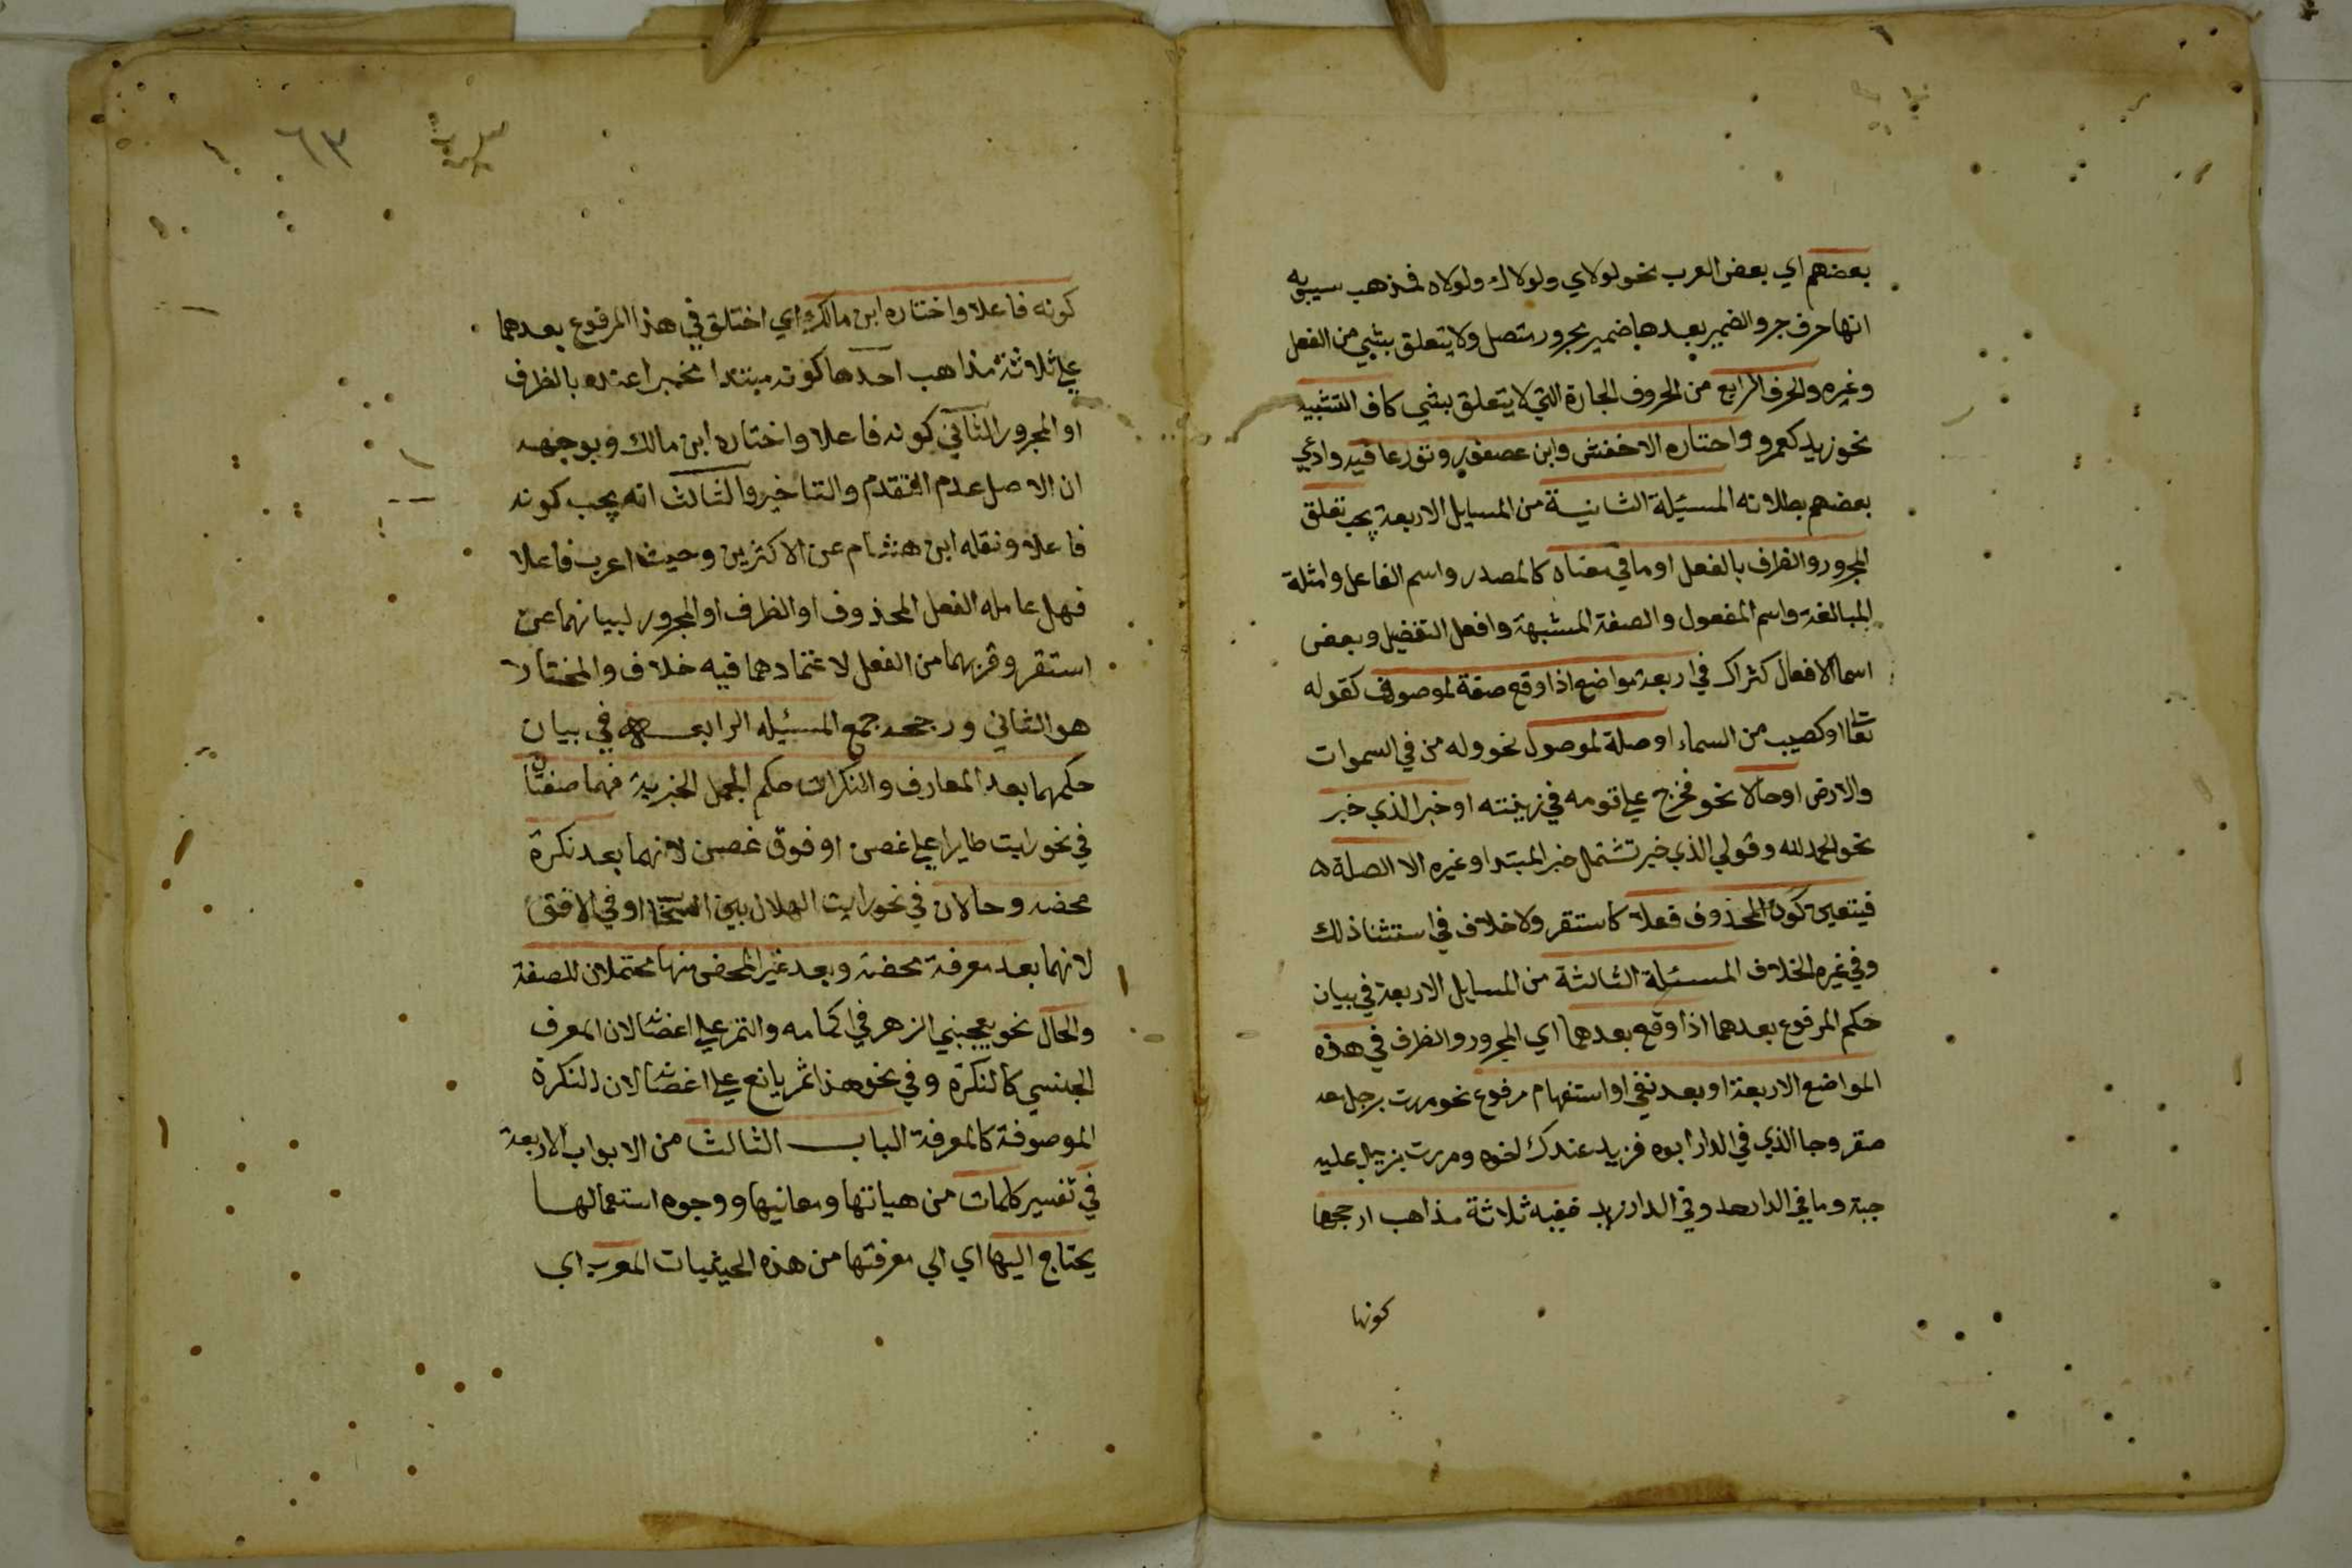 بعضهم اي بعض العرب نحو لولاي ولولاك ولولاه فمذهب سيبويه
انها حرف جر والضمير بعدها ضمير مجرور متصل ولا يتعلق بشي من الفعل
وغيره والحرف الرابع من الحروف الجارة التي لا يتعلق بشي كاف التشبيه
نحو زيد كعمرو واختاره الاخفش وابن عصفور ونوزعا فيه وادعي
بعضهم بطلانه المسئلة الثانية من المسايل الاربعة يجب تعلق
المجرور والظرف بالفعل او ما في معناه كالمصدر واسم الفاعل وامثلة
المبالغة واسم المفعول والصفة المشبهة وافعل التفضيل وبعض
اسما الافعال كثراك في اربعة مواضع اذا وقع صفة لموصوف كقوله
تعا او كصيب من السماء او صلة لموصول نحو وله من في السموات
والارض او حالا نحو فخرج علي قومه في زينته او خبر الذي خبر
نحو الحمد لله وقولي الذي خبر تشتمل خبر المبتدا وغيره الا الصلة ه
فيتعين كون المحذوف فعلا كاستقر ولا خلاف في استثنا ذلك
وفي غيره الخلاف المسئلة الثالثة من المسايل الاربعة في بيان
حكم المرفوع بعدهما اذا وقع بعدهما اي المجرور والظرف في هذه
المواضع الاربعة او بعد نفي او استفهام مرفوع نحو مررت برجل معه
صقر وجا الذي في الدار ابوه فزيد عندك اخوه ومررت بزيد عليه
جبة وما في الدار احد وفي الدار زيد ففيه ثلاثة مذاهب ارجحها
كونها
٦٣
كونه فاعلا واختاره ابن مالك اي اختلق في هذا المرفوع بعدهما
علي ثلاثة مذاهب احدها كونه مبتدا مخبرا عنه بالظرف
او المجرور الثاني كونه فاعلا واختاره ابن مالك وبوجهه
ان الاصل عدم التقدم والتاخير والثالث انه يجب كونه
فاعلا ونقله ابن هشام عن الاكثرين وحيث اعرب فاعلا
فهل عامله الفعل المحذوف او الظرف او المجرور لبيانهما عن
استقر وقربهما من الفعل لاعتمادهما فيه خلاف والمختار
هو الثاني ورجحه جمع المسئيله الرابعه في بيان
حكمهما بعد المعارف والنكرات حكم الجمل الخبرية فهما صفتان
في نحو رايت طايرا علي غصن او فوق غصن لانهما بعد نكرة
محضه وحالان في نحو رايت الهلال بين السحاب او في الافق
لانهما بعد معرفة محضة وبعد غير المحض منها محتملان للصفة
والحال نحو يعجبني الزهر في اكمامه والثمر علي اغصانه لان المعرف
الجنسي كالنكرة وفي نحو هذا ثمر يانع علي اغصانه لان النكرة
الموصوفة كالمعرفة الباب الثالث من الابواب الاربعة
في تفسير كلمات من هياتها ومعانيها ووجوه استعمالها
يحتاج اليها اي الي معرفتها من هذه الحيثيات المعرب اي